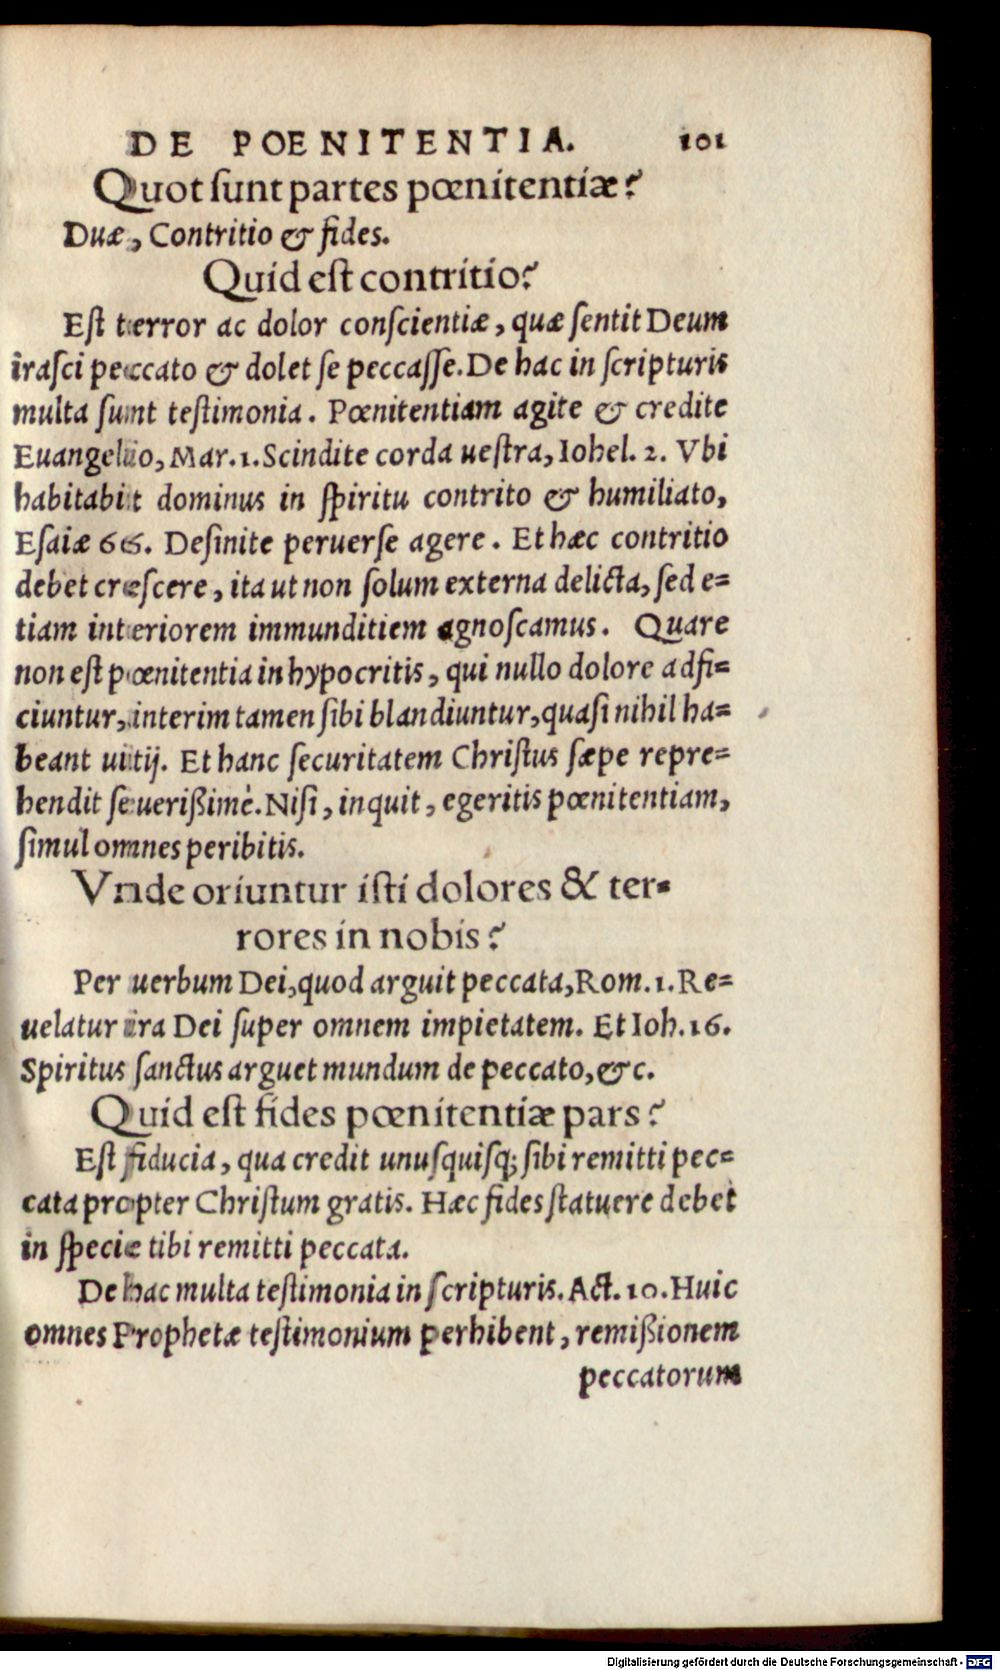 DE POENITENTIA. 101
Quot sunt partes pœnitentiæ?
Duæ, Contritio & fides.
Quid est contritio?
Est terror ac dolor conscientiæ, quæ sentit Deum
irasci peccato & dolet se peccasse. De hac in scripturis
multa sunt testimonia. Pœnitentiam agite & credite
Euangelio, Mar. 1. Scindite corda uestra, Iohel. 2. Vbi
habitabit dominus in spiritu contrito & humiliato,
Esaiæ 66. Desinite peruerse agere. Et hæc contritio
debet crescere, ita ut non solum externa delicta, sed e=
tiam interiorem immunditiem agnoscamus. Quare
non est pœnitentia in hypocritis, qui nullo dolore adfi=
ciuntur, interim tamen sibi blandiuntur, quasi nihil ha=
beant uitij. Et hanc securitatem Christus sæpe repre=
hendit seuerißimè. Nisi, inquit, egeritis pœnitentiam,
simul omnes peribitis.
Vnde oriuntur isti dolores & ter=
rores in nobis?
Per uerbum Dei, quod arguit peccata, Rom. 1. Re=
uelatur ira Dei super omnem impietatem. Et Ioh. 16.
Spiritus sanctus arguet mundum de peccato, &c.
Quid est fides pœnitentiæ pars?
Est fiducia, qua credit unusquisq; sibi remitti pec=
cata propter Christum gratis. Hæc fides statuere debet
in specie tibi remitti peccata.
De hac multa testimonia in scripturis. Act. 10. Huic
omnes Prophetæ testimonium perhibent, remißionem
peccatorum
Digitalisierung gefördert durch die Deutsche Forschungsgemeinschaft - DFG